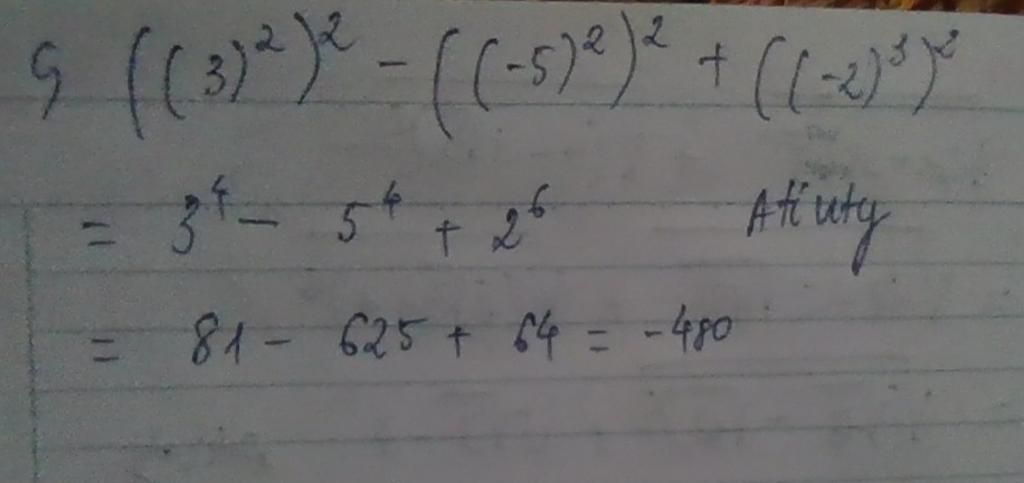 G ((3)²)² - ((-5)²)² + ((-2)³)²
= 3⁴ - 5⁴ + 2⁶ Atiuty
= 81 - 625 + 64 = -480